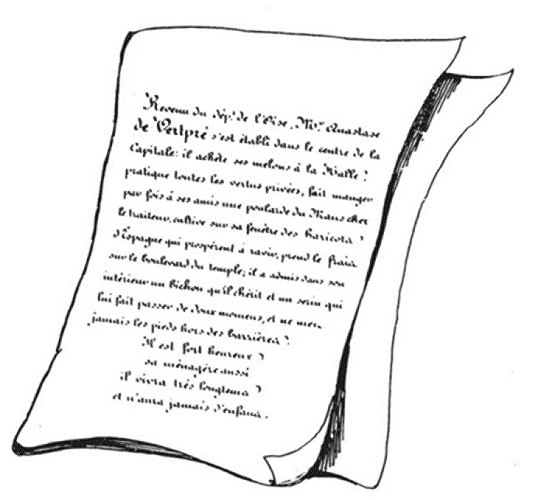 Revenu du dép.t de l'Oise, M.r Anastase
de Vertpré s'est établi dans le centre de la
Capitale: il achète ses melons à la Halle?
pratique toutes les vertus privées, fait manger
par fois à ses amis une poularde du Mans chez
le traiteur, cultive sur sa fenêtre des haricots?
d'Espagne qui prospèrent à ravir, prend le frais
sur le boulevard du temple; il a admis dans son
intérieur un bichon qu'il chérit et un serin qui
lui fait passer de doux momens, et ne met
jamais les pieds hors des barrières?.
Il est fort heureux?
sa ménagère aussi
il vivra très longtems?
et n'aura jamais d'enfans.